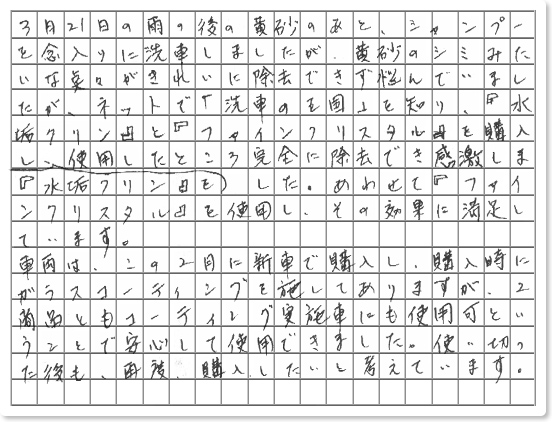 3月21日の雨の後の黄砂のあと、シャンプー
を念入りに洗車しましたが、黄砂のシミみた
いな点々がきれいに除去できず悩んでいまし
たが、ネットで「洗車の王国」を知り、『水
垢クリン』と『ファインクリスタル』を購入
し、使用したところ完全に除去でき感激しま
『水垢クリン』を した。あわせて『ファイ
ンクリスタル』を使用し、その効果に満足し
ています。
車両は、この2月に新車で購入し、購入時に
ガラスコーティングを施してありますが、2
商品ともコーティング実施車にも使用可とい
うことで安心して使用できました。使い切っ
た後も、再度、購入したいと考えています。